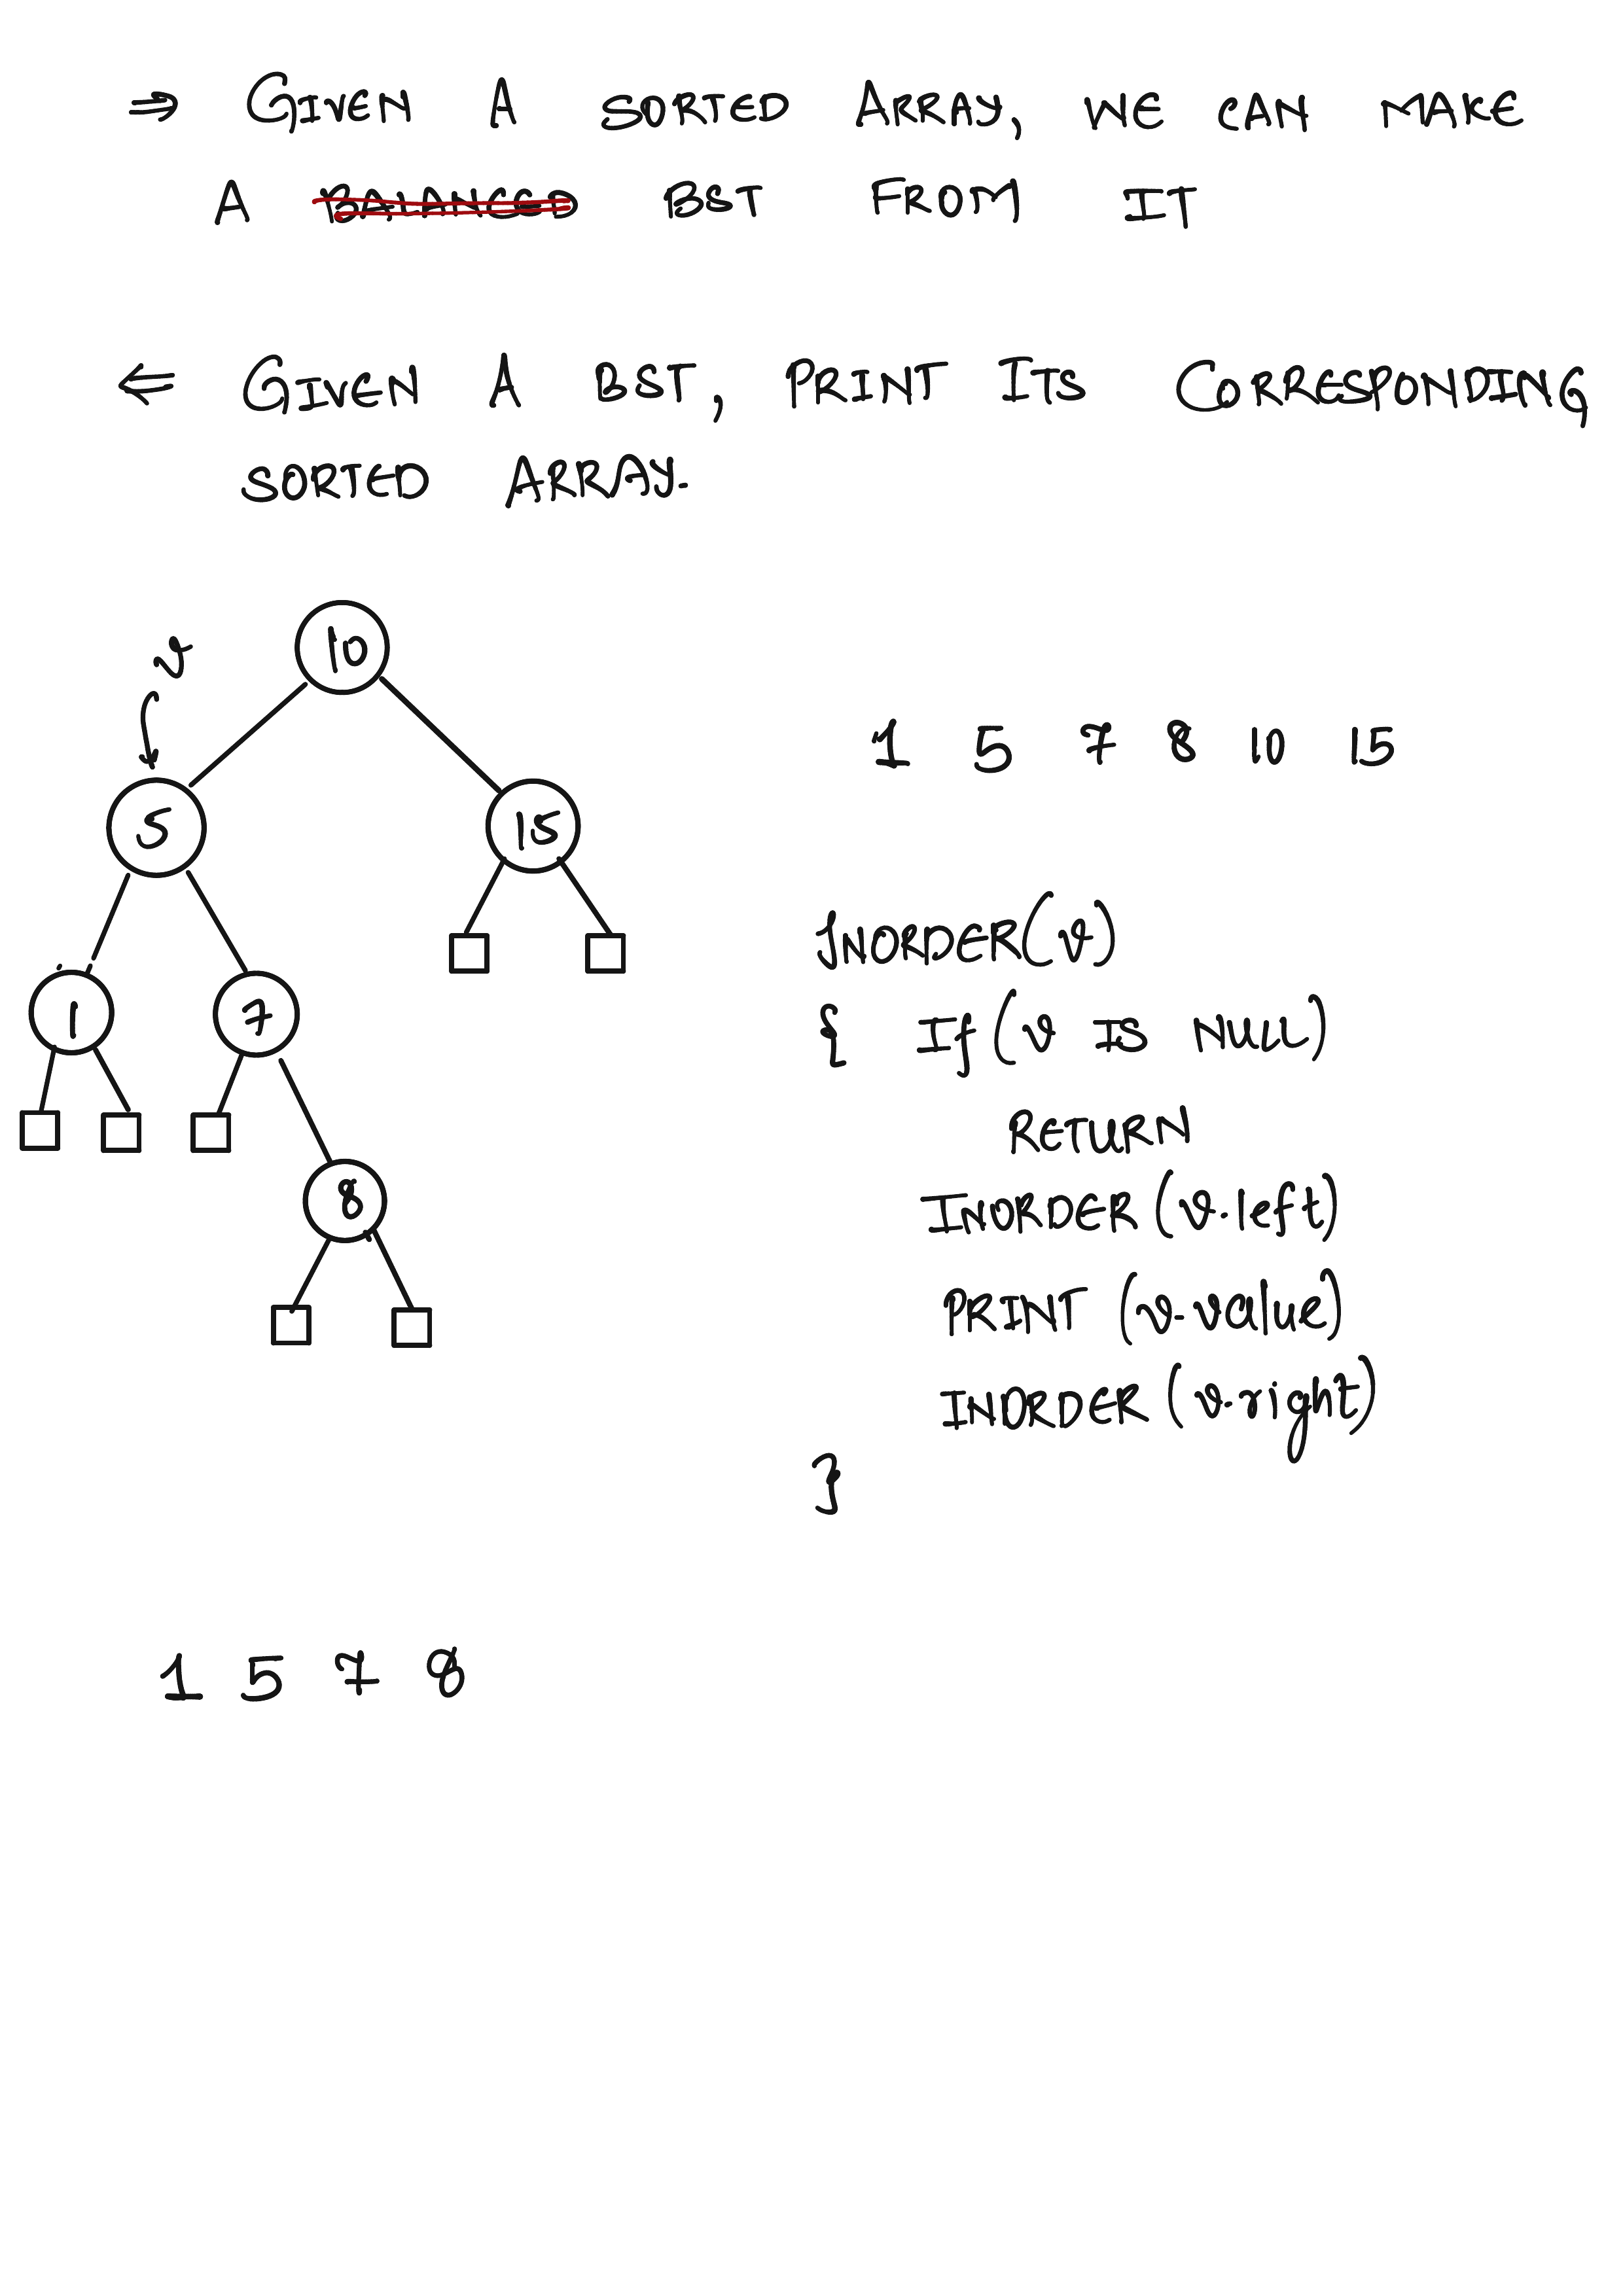 ⇒ GIVEN A SORTED ARRAY, WE CAN MAKE
A BALANCED BST FROM IT
⇐ GIVEN A BST, PRINT ITS CORRESPONDING
SORTED ARRAY.
v
10
5
15
1
7
8
1 5 7 8 10 15
INORDER(v)
{ If (v IS NULL)
RETURN
INORDER (v.left)
PRINT (v.value)
INORDER (v.right)
}
1 5 7 8